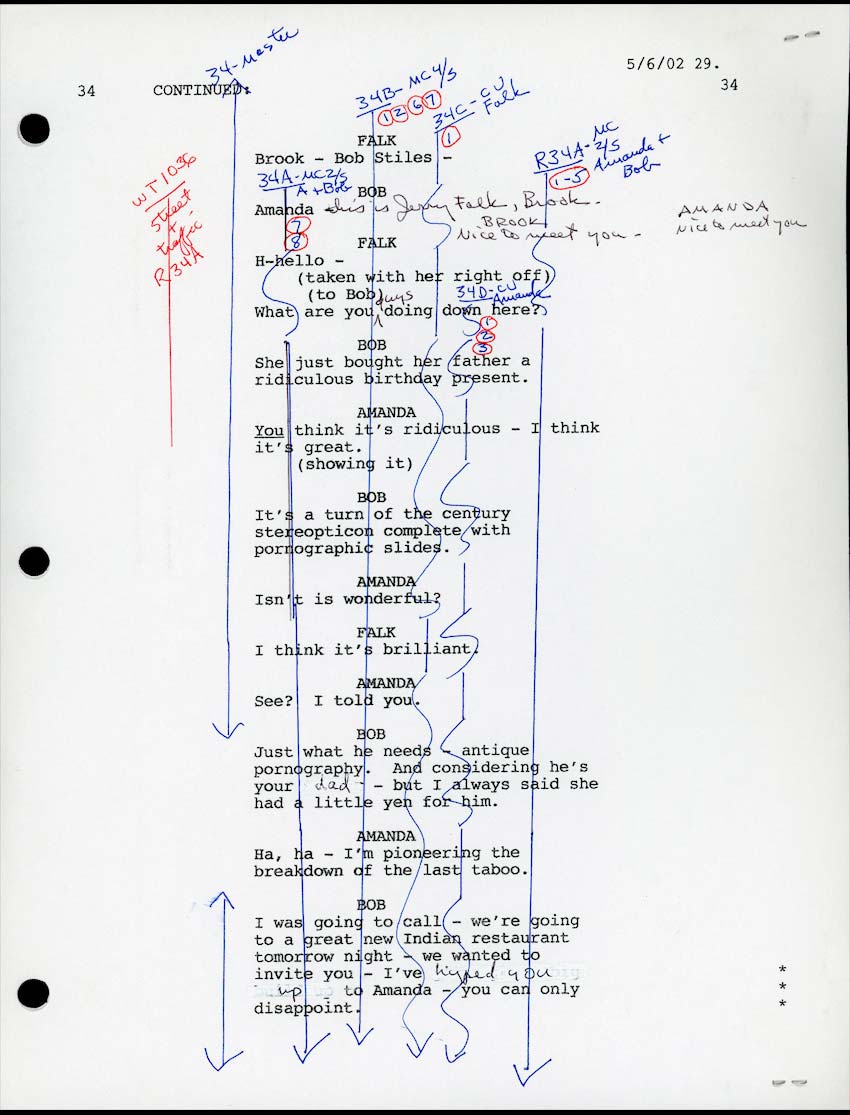 34-Master
5/6/02 29.
34 CONTINUED: 34
34B-MC 4/S
1 2 6 7
34C-CU
Falk
1
R34A-MC
2/S
Amanda +
Bob
1-5
WT 1036
street
+
traffic
R34A
FALK
Brook - Bob Stiles -
34A-MC2/S
A + Bob
7
8
BOB
Amanda - this is Jerry Falk, Brook.
BROOK
Nice to meet you -
AMANDA
Nice to meet you
FALK
H-hello -
(taken with her right off)
(to Bob)
What are you guys doing down here?
34D-CU
Amanda
1
2
3
BOB
She just bought her father a
ridiculous birthday present.
AMANDA
You think it's ridiculous - I think
it's great.
(showing it)
BOB
It's a turn of the century
stereopticon complete with
pornographic slides.
AMANDA
Isn't is wonderful?
FALK
I think it's brilliant.
AMANDA
See? I told you.
BOB
Just what he needs - antique
pornography. And considering he's
your dad - - but I always said she
had a little yen for him.
AMANDA
Ha, ha - I'm pioneering the
breakdown of the last taboo.
BOB
I was going to call - we're going
to a great new Indian restaurant
tomorrow night - we wanted to
invite you - I've hyped you *
up to Amanda - you can only *
disappoint. *